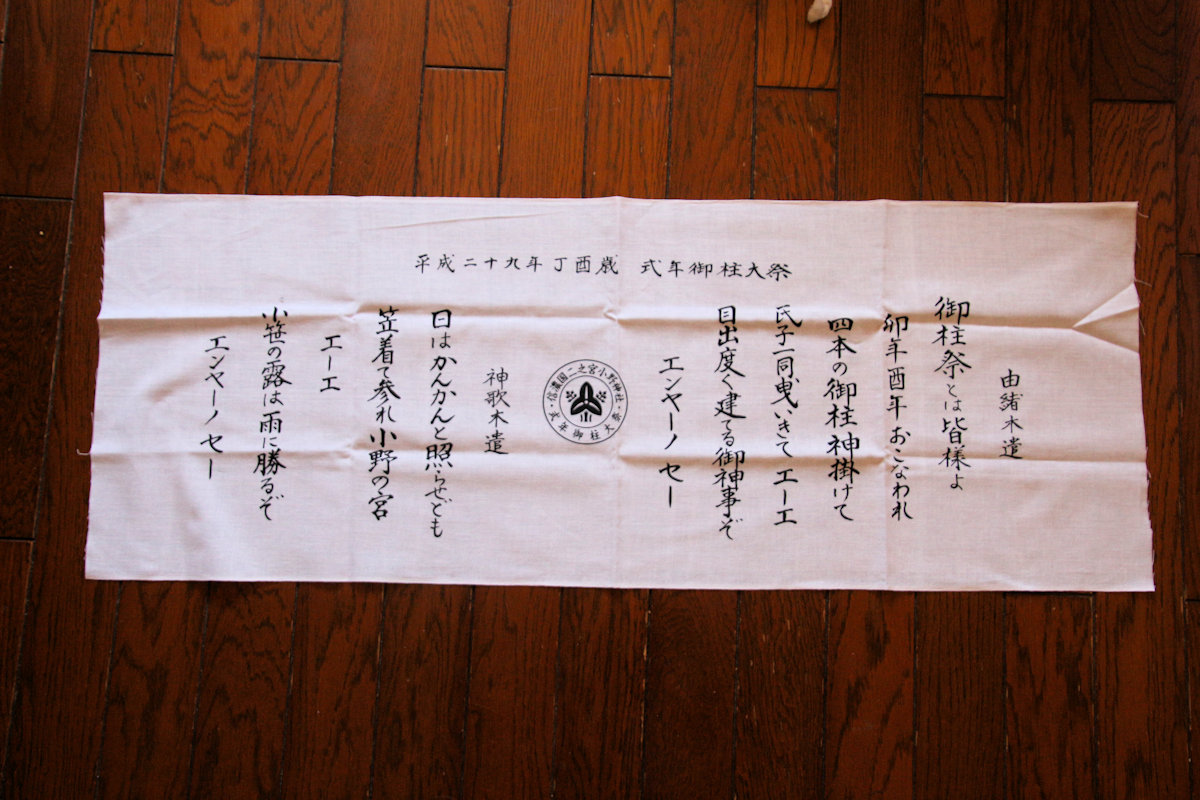 平成二十九年丁酉歳 式年御柱大祭
由緒木遣
御柱祭とは皆様よ
卯年酉年おこなわれ
四本の御柱神掛けて
氏子一同曳いきて エーエ
目出度く建てる御神事ぞ
エンヤーノ セー
信濃国二之宮小野神社
式年御柱大祭
神歌木遣
日はかんかんと照らせども
笠着て参れ小野の宮
エーエ
小笹の露は雨に勝るぞ
エンヤーノ セー